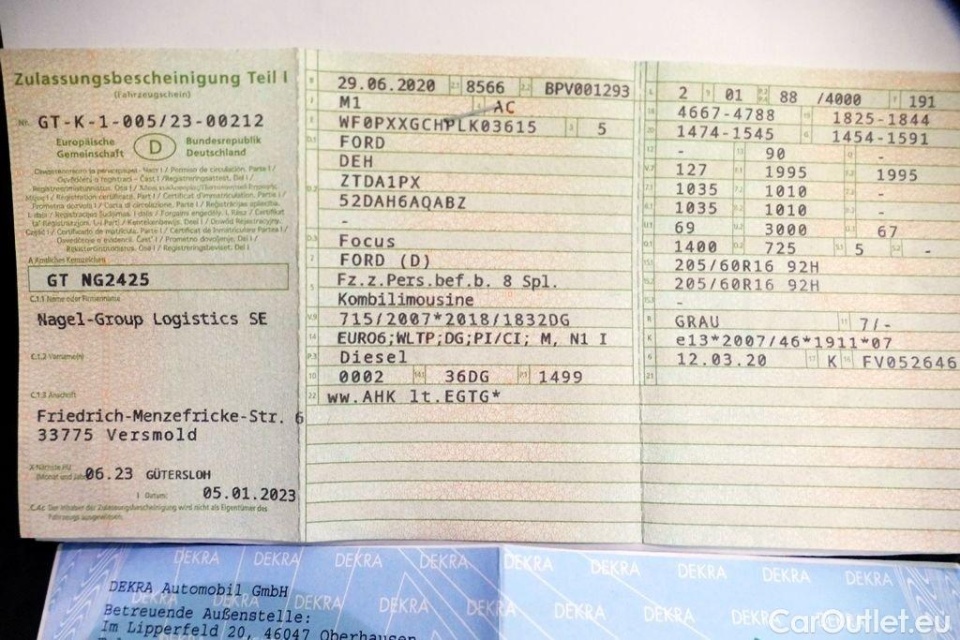 Zulassungsbescheinigung Teil I
(Fahrzeugschein)
Nr. GT-K-1-005/23-00212
Europäische Gemeinschaft D Bundesrepublik Deutschland
A Amtliches Kennzeichen
GT NG2425
C.1.1 Name oder Firmenname
Nagel-Group Logistics SE
C.1.2 Vorname(n)
C.1.3 Anschrift
Friedrich-Menzefricke-Str. 6
33775 Versmold
06.23 GÜTERSLOH
I Datum: 05.01.2023
C.4c Der Inhaber der Zulassungsbescheinigung wird nicht als Eigentümer des
Fahrzeugs ausgewiesen.
B 29.06.2020 2.1 8566 2.2 BPV001293
J M1 4 AC
E WF0PXXGCHPLK03615 3 5
D.1 FORD
DEH
D.2 ZTDA1PX
52DAH6AQABZ
-
D.3 Focus
2 FORD (D)
5 Fz.z.Pers.bef.b. 8 Spl.
Kombilimousine
V.9 715/2007*2018/1832DG
14 EURO6;WLTP;DG;PI/CI; M, N1 I
P.3 Diesel
10 0002 14.1 36DG P.1 1499
22 ww.AHK lt.EGTG*
L 2 9 01 P.2 P.4 88 /4000 T 191
18 4667-4788 19 1825-1844
20 1474-1545 G 1454-1591
12 - 13 90 Q -
V.7 127 F.1 1995 F.2 1995
7.1 1035 7.2 1010 7.3 -
8.1 1035 8.2 1010 8.3 -
U.1 69 U.2 3000 U.3 67
O.1 1400 O.2 725 S.1 5 S.2 -
15.1 205/60R16 92H
15.2 205/60R16 92H
15.3 -
R GRAU 11 7/-
K e13*2007/46*1911*07
6 12.03.20 17 K 16 FV052646
21
DEKRA DEKRA DEKRA DEKRA DEKRA DEKRA DEKRA
DEKRA Automobil GmbH
Betreuende Außenstelle:
Im Lipperfeld 20, 46047 Oberhausen
CarOutlet.eu